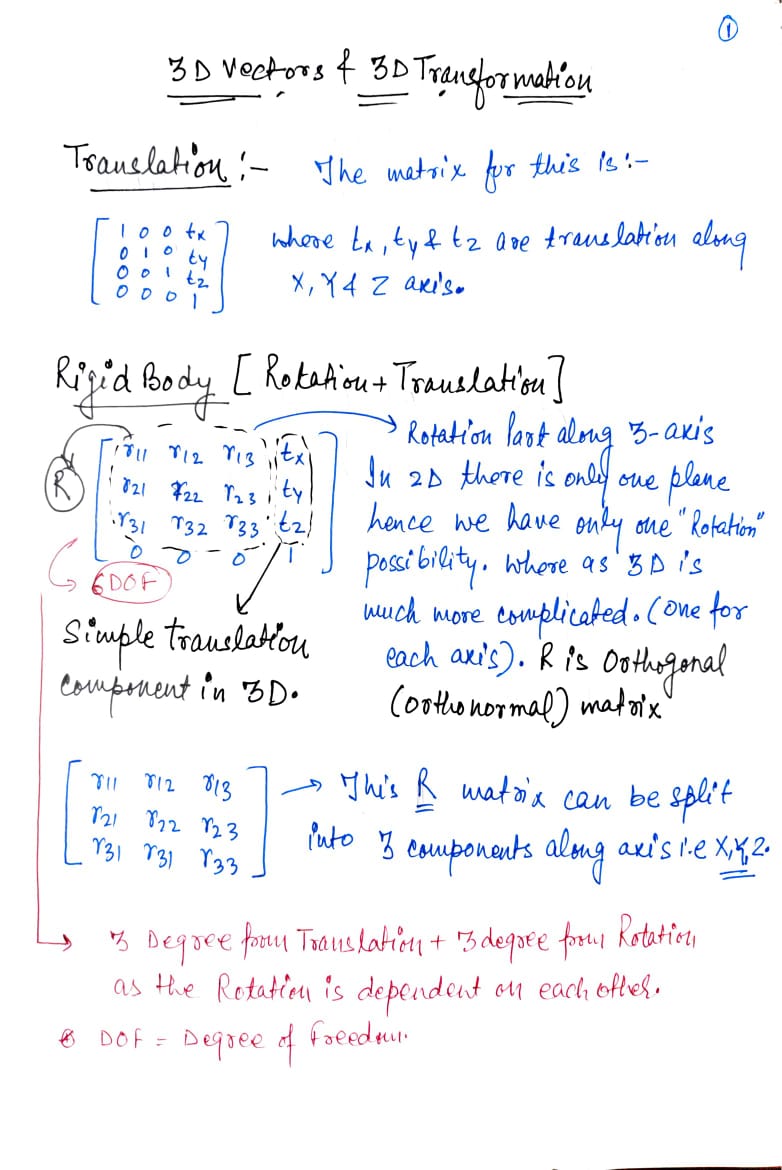 ①
3D Vectors & 3D Transformation
Translation :- The matrix for this is :-
1 0 0 tx
0 1 0 ty
0 0 1 tz
0 0 0 1
where tx, ty & tz are translation along
X, Y & Z axis.
Rigid Body [Rotation + Translation]
R
r11 r12 r13 tx
r21 r22 r23 ty
r31 r32 r33 tz
0 0 0 1
6DOF
Simple translation
component in 3D.
Rotation Part along 3-axis
In 2D there is only one plane
hence we have only one "Rotation"
possibility. Where as 3D is
much more complicated. (one for
each axis). R is Orthogonal
(orthonormal) matrix
r11 r12 r13
r21 r22 r23
r31 r31 r33
→ This R matrix can be split
into 3 components along axis i.e X, Y, Z.
3 Degree from Translation + 3 degree from Rotation
as the Rotation is dependent on each other.
DOF = Degree of freedom.